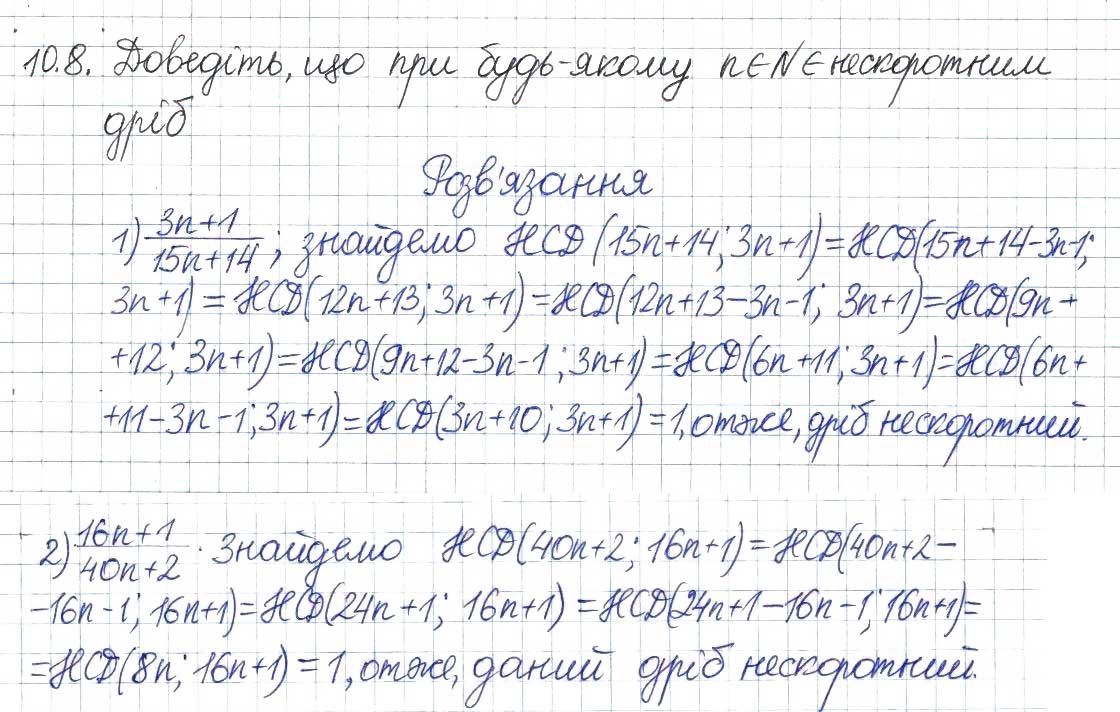 10.8. Доведіть, що при будь-якому n∈N є нескоротним
дріб
Розв'язання
1) (3n+1)/(15n+14); знайдемо НСД (15n+14; 3n+1) = НСД(15n+14-3n-1;
3n+1) = НСД(12n+13; 3n+1) = НСД(12n+13-3n-1; 3n+1) = НСД(9n+
+12; 3n+1) = НСД(9n+12-3n-1; 3n+1) = НСД(6n+11; 3n+1) = НСД(6n+
+11-3n-1; 3n+1) = НСД(3n+10; 3n+1) = 1, отже, дріб нескоротний.
2) (16n+1)/(40n+2). Знайдемо НСД(40n+2; 16n+1) = НСД(40n+2-
-16n-1; 16n+1) = НСД(24n+1; 16n+1) = НСД(24n+1-16n-1; 16n+1) =
= НСД(8n; 16n+1) = 1, отже, даний дріб нескоротний.